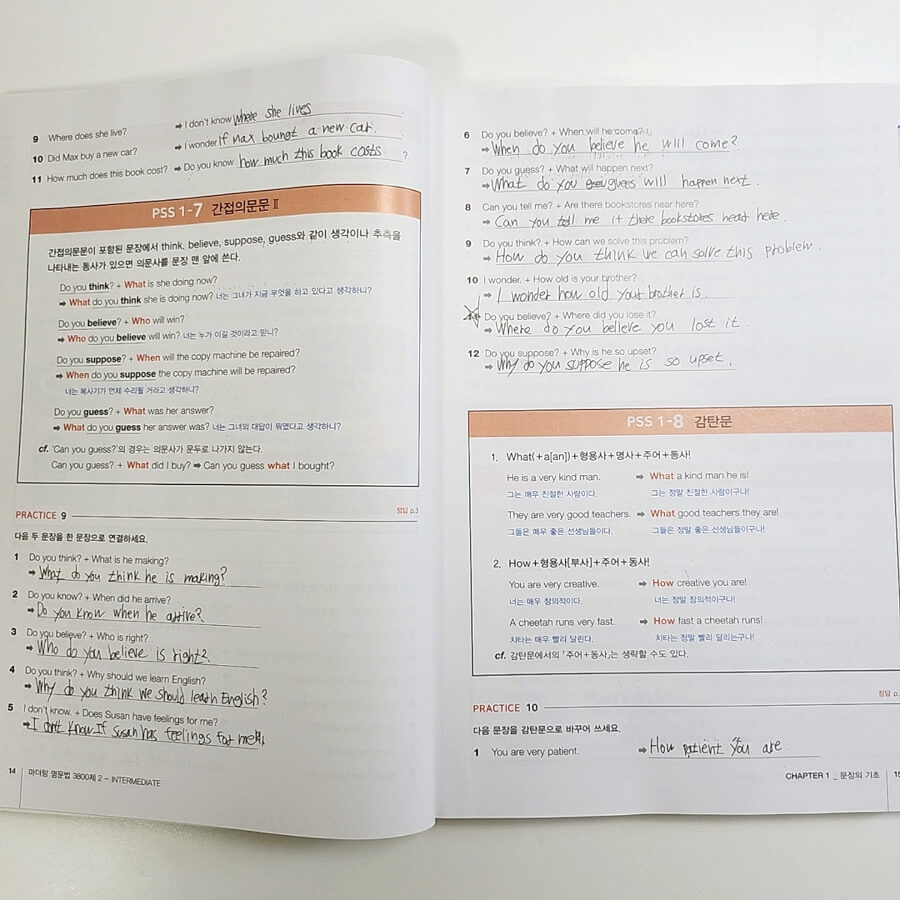 9 Where does she live? ➡ I don't know where she lives
10 Did Max buy a new car? ➡ I wonder if Max boungt a new car.
11 How much does this book cost? ➡ Do you know how much this book costs ?
PSS 1-7 간접의문문 Ⅱ
간접의문문이 포함된 문장에서 think, believe, suppose, guess와 같이 생각이나 추측을
나타내는 동사가 있으면 의문사를 문장 맨 앞에 쓴다.
Do you think? + What is she doing now?
➡ What do you think she is doing now? 너는 그녀가 지금 무엇을 하고 있다고 생각하니?
Do you believe? + Who will win?
➡ Who do you believe will win? 너는 누가 이길 것이라고 믿니?
Do you suppose? + When will the copy machine be repaired?
➡ When do you suppose the copy machine will be repaired?
너는 복사기가 언제 수리될 거라고 생각하니?
Do you guess? + What was her answer?
➡ What do you guess her answer was? 너는 그녀의 대답이 뭐였다고 생각하니?
cf. 'Can you guess?'의 경우는 의문사가 문두로 나가지 않는다.
Can you guess? + What did I buy? ➡ Can you guess what I bought?
PRACTICE 9 정답 p.3
다음 두 문장을 한 문장으로 연결하세요.
1 Do you think? + What is he making?
➡ What do you think he is making?
2 Do you know? + When did he arrive?
➡ Do you know when he arrive?
3 Do you believe? + Who is right?
➡ Who do you believe is right?
4 Do you think? + Why should we learn English?
➡ Why do you think we should learn English?
5 I don't know. + Does Susan have feelings for me?
➡ I don't know If susan has feelings for me
14 마더텅 영문법 3800제 2 – INTERMEDIATE
6 Do you believe? + When will he come?
➡ When do you believe he will come?
7 Do you guess? + What will happen next?
➡ What do you guess will happen next.
8 Can you tell me? + Are there bookstores near here?
➡ Can you tell me if there bookstores near here.
9 Do you think? + How can we solve this problem?
➡ How do you think we can solve this problem.
10 I wonder. + How old is your brother?
➡ I wonder how old your brother is.
11 Do you believe? + Where did you lose it?
➡ Where do you believe you lost it.
12 Do you suppose? + Why is he so upset?
➡ Why do you suppose he is so upset.
PSS 1-8 감탄문
1. What(+a[an])+형용사+명사+주어+동사!
He is a very kind man. ➡ What a kind man he is!
그는 매우 친절한 사람이다. 그는 정말 친절한 사람이구나!
They are very good teachers. ➡ What good teachers they are!
그들은 매우 좋은 선생님들이다. 그들은 정말 좋은 선생님들이구나!
2. How+형용사[부사]+주어+동사!
You are very creative. ➡ How creative you are!
너는 매우 창의적이다. 너는 정말 창의적이구나!
A cheetah runs very fast. ➡ How fast a cheetah runs!
치타는 매우 빨리 달린다. 치타는 정말 빨리 달리는구나!
cf. 감탄문에서의 「주어+동사」는 생략할 수도 있다.
정답 p.
PRACTICE 10
다음 문장을 감탄문으로 바꾸어 쓰세요.
1 You are very patient. ➡ How patient you are.
CHAPTER 1 _ 문장의 기초 15